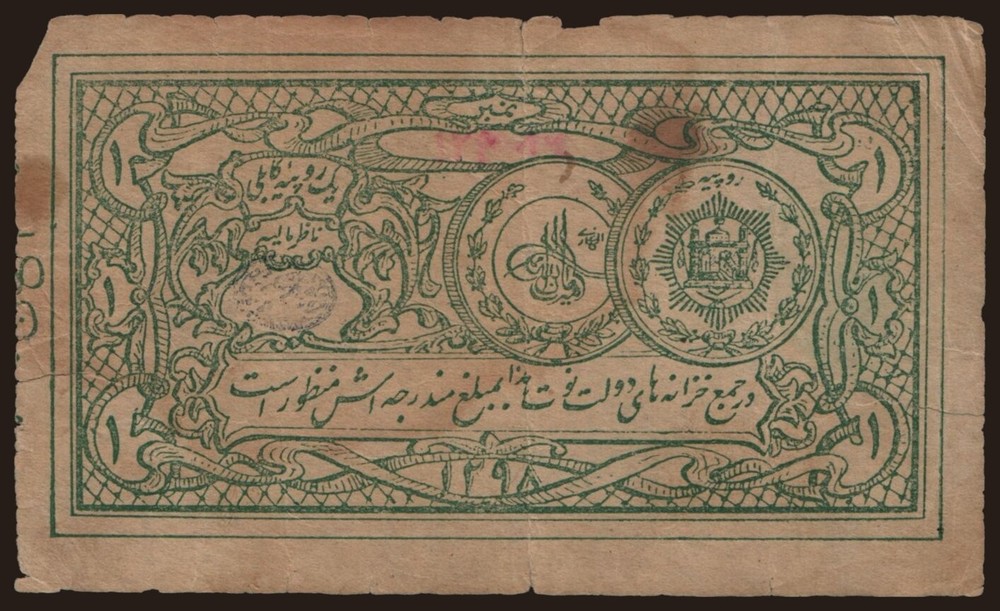 نمبر
۱
۱
یک روپیه کابلی
ناظر مالیه
روپیه
۱
۱
در جمیع خزانه های دولت نوت هذا بمبلغ مندرجه اش منظور است
۱
۱
۱۲۹۸